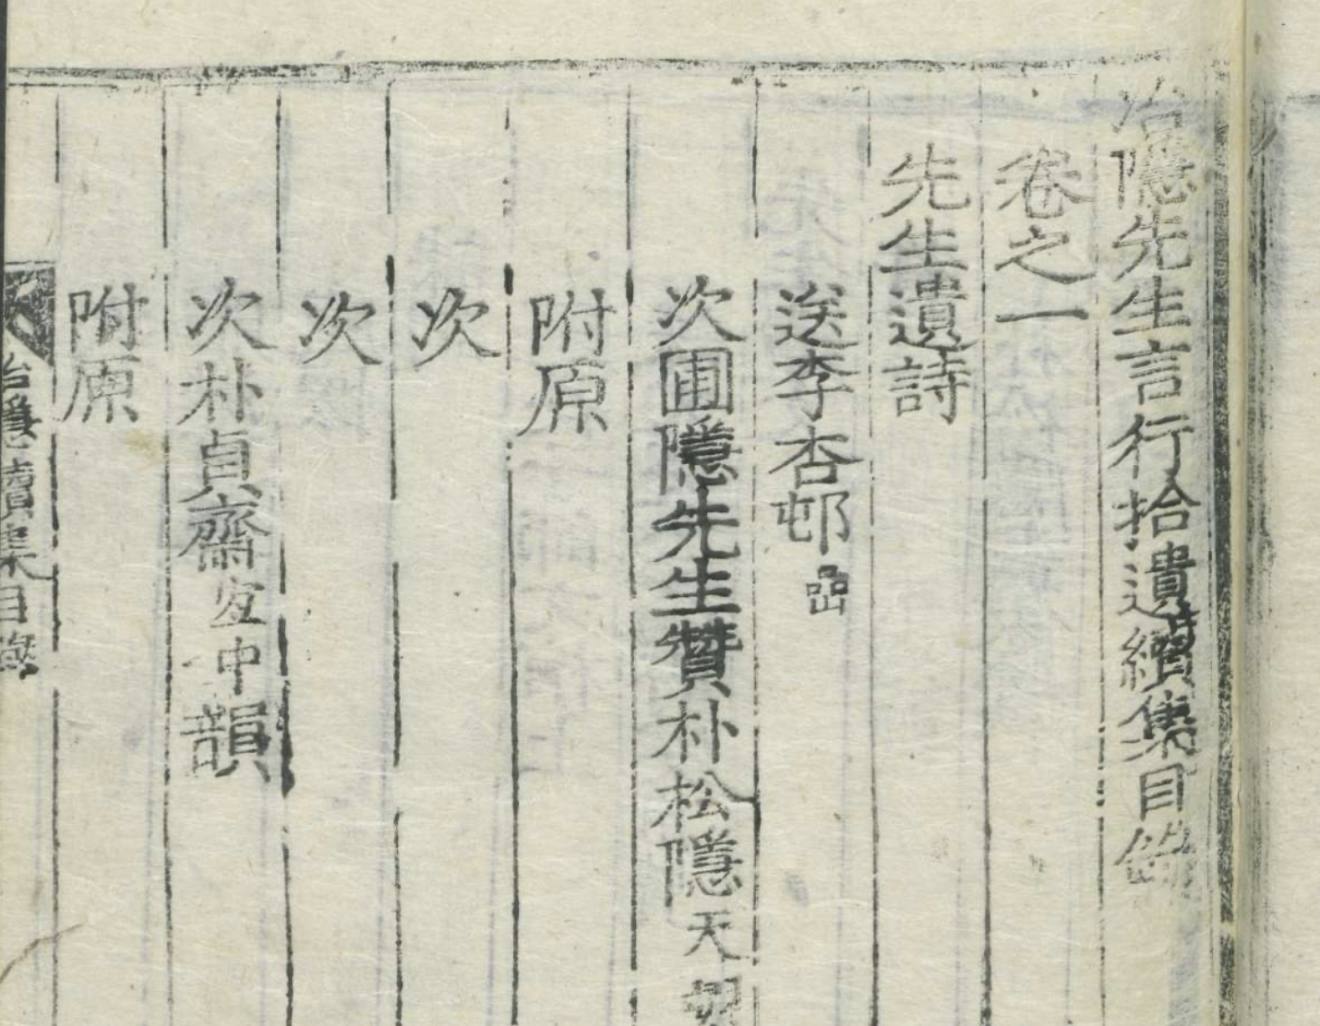 冶隱先生言行拾遺續集目錄
卷之一
先生遺詩
送李杏邨嵒
次圃隱先生贊朴松隱天
附原
次
次
次朴貞齋宜中韻
附原
冶隱續集目錄